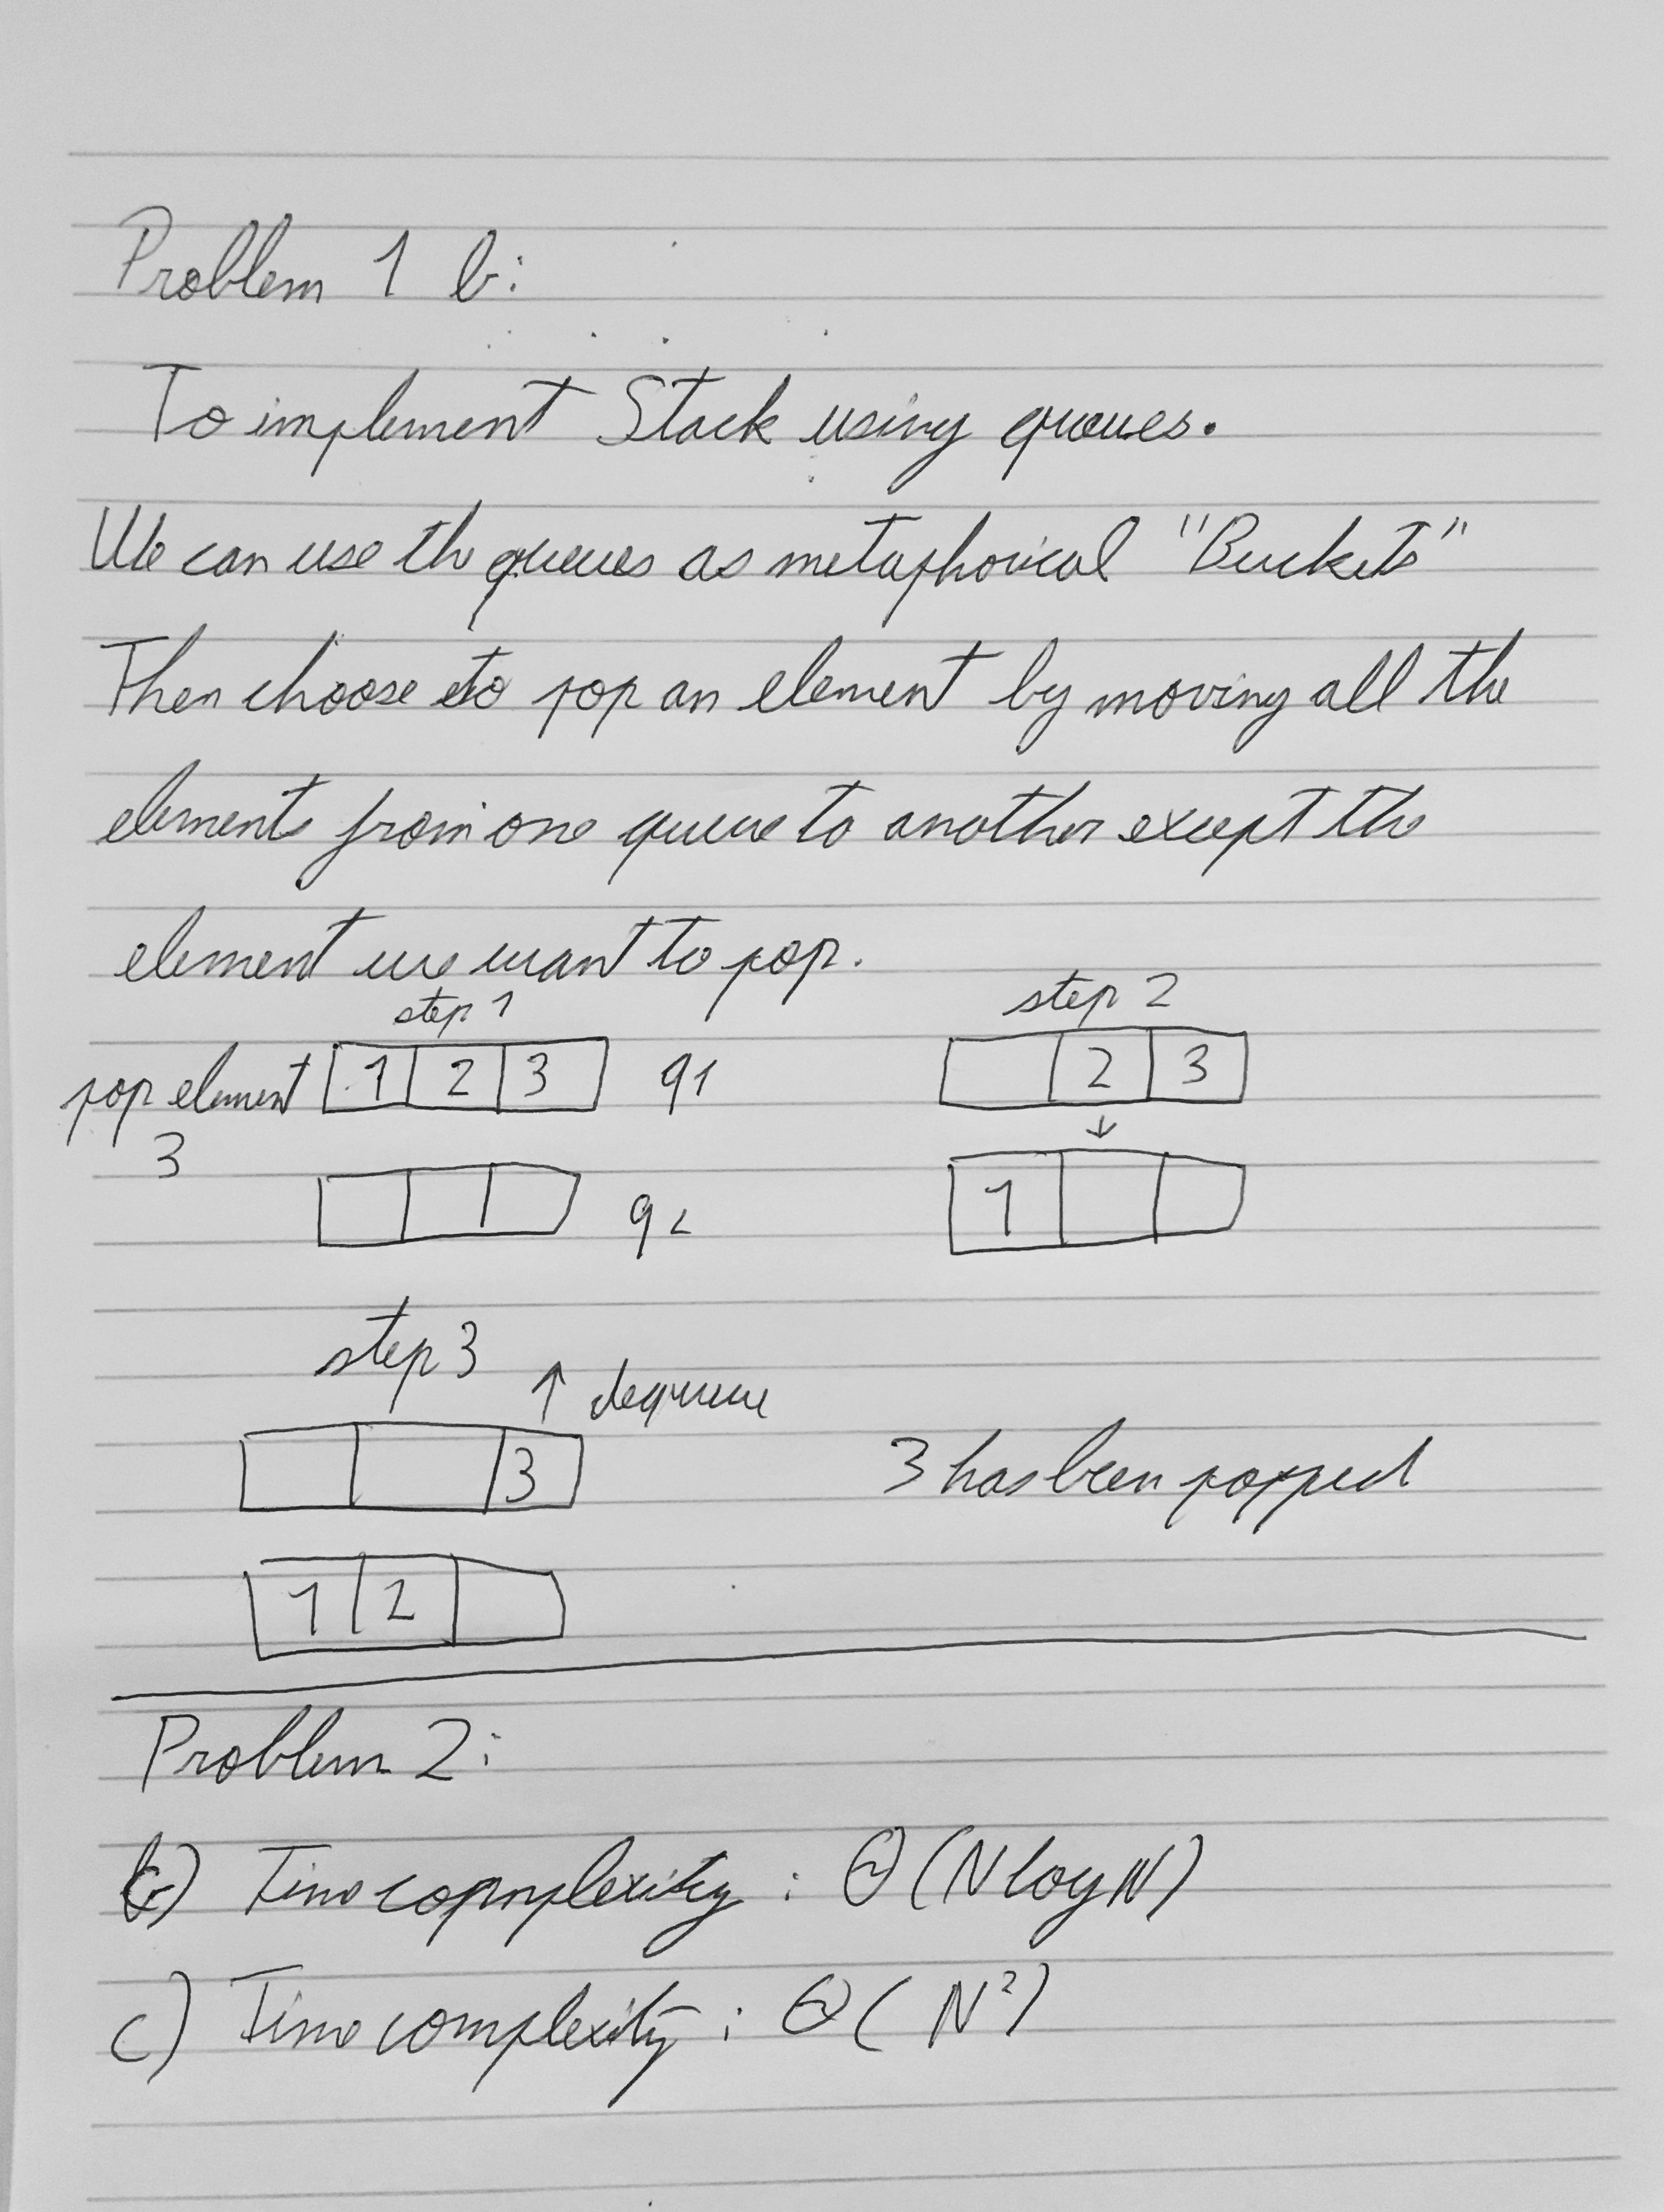 Problem 1 b:
To implement Stack using queues.
We can use the queues as metaphorical "Buckets"
Then choose to pop an element by moving all the
elements from one queue to another except the
element we want to pop.
step 1
step 2
pop element
3
1 2 3 q1
2 3
↓
q2
1
step 3
↑ dequeue
3
3 has been popped
1 2
Problem 2:
b) Time copmplexity : Θ(N log N)
c) Time complexity : Θ( N²)